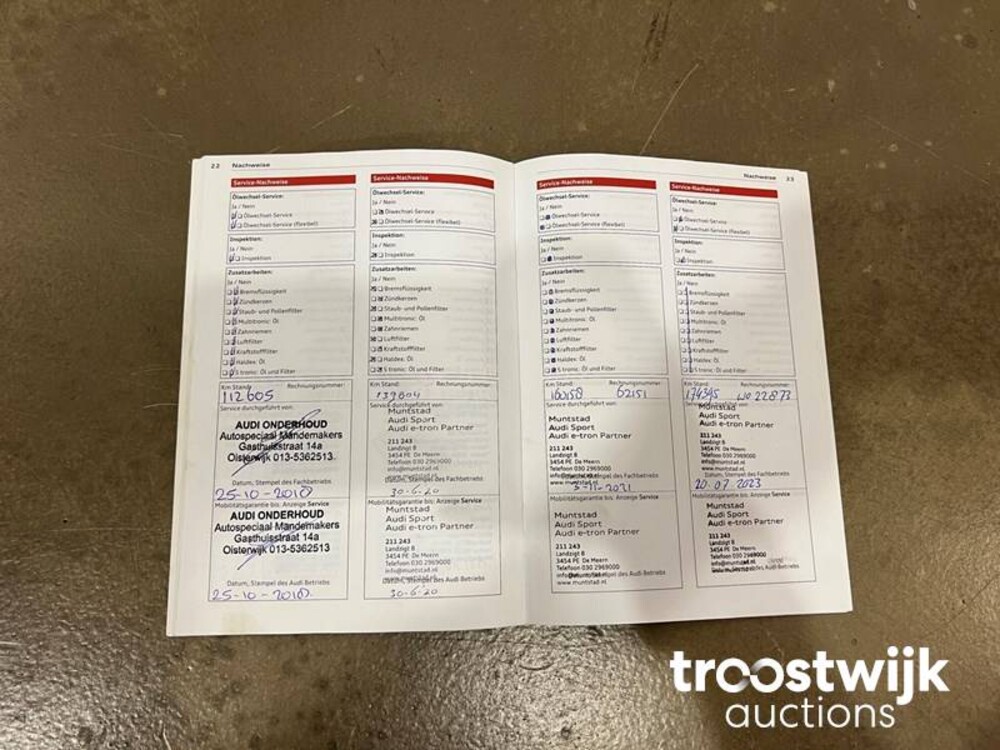 22 Nachweise
Service-Nachweise
Ölwechsel-Service:
Ja / Nein
Ölwechsel-Service
Ölwechsel-Service (flexibel)
Inspektion:
Ja / Nein
Inspektion
Zusatzarbeiten:
Ja / Nein
Bremsflüssigkeit
Zündkerzen
Staub- und Pollenfilter
Multitronic: Öl
Zahnriemen
Luftfilter
Kraftstofffilter
Haldex: Öl
S tronic: Öl und Filter
Km Stand: Rechnungsnummer:
112605
Service durchgeführt von:
AUDI ONDERHOUD
Autospeciaal Mandemakers
Gasthuisstraat 14a
Oisterwijk 013-5362513
Datum, Stempel des Fachbetriebs
25-10-2018
Mobilitätsgarantie bis: Anzeige Service
AUDI ONDERHOUD
Autospeciaal Mandemakers
Gasthuisstraat 14a
Oisterwijk 013-5362513
Datum, Stempel des Audi Betriebs
25-10-2018
Service-Nachweise
Ölwechsel-Service:
Ja / Nein
Ölwechsel-Service
Ölwechsel-Service (flexibel)
Inspektion:
Ja / Nein
Inspektion
Zusatzarbeiten:
Ja / Nein
Bremsflüssigkeit
Zündkerzen
Staub- und Pollenfilter
Multitronic: Öl
Zahnriemen
Luftfilter
Kraftstofffilter
Haldex: Öl
S tronic: Öl und Filter
Km Stand: Rechnungsnummer:
139604
Service durchgeführt von:
Muntstad
Audi Sport
Audi e-tron Partner
211 243
Landzigt 8
3454 PE De Meern
Telefoon 030 2969000
info@muntstad.nl
Datum, Stempel des Fachbetriebs
30-6-20
Mobilitätsgarantie bis: Anzeige Service
Muntstad
Audi Sport
Audi e-tron Partner
211 243
Landzigt 8
3454 PE De Meern
Telefoon 030 2969000
info@muntstad.nl
Datum, Stempel des Audi Betriebs
30-6-20
Nachweise 23
Service-Nachweise
Ölwechsel-Service:
Ja / Nein
Ölwechsel-Service
Ölwechsel-Service (flexibel)
Inspektion:
Ja / Nein
Inspektion
Zusatzarbeiten:
Ja / Nein
Bremsflüssigkeit
Zündkerzen
Staub- und Pollenfilter
Multitronic: Öl
Zahnriemen
Luftfilter
Kraftstofffilter
Haldex: Öl
S tronic: Öl und Filter
Km Stand: Rechnungsnummer:
160158 62151
Service durchgeführt von:
Muntstad
Audi Sport
Audi e-tron Partner
211 243
Landzigt 8
3454 PE De Meern
Telefoon 030 2969000
info@muntstad.nl
www.muntstad.nl
3-11-2021
Mobilitätsgarantie bis: Anzeige Service
Muntstad
Audi Sport
Audi e-tron Partner
211 243
Landzigt 8
3454 PE De Meern
Telefoon 030 2969000
www.muntstad.nl
Service-Nachweise
Ölwechsel-Service:
Ja / Nein
Ölwechsel-Service
Ölwechsel-Service (flexibel)
Inspektion:
Ja / Nein
Inspektion
Zusatzarbeiten:
Ja / Nein
Bremsflüssigkeit
Zündkerzen
Staub- und Pollenfilter
Multitronic: Öl
Zahnriemen
Luftfilter
Kraftstofffilter
Haldex: Öl
S tronic: Öl und Filter
Km Stand: Rechnungsnummer:
174345 WO 22873
Service durchgeführt von:
Muntstad
Audi Sport
Audi e-tron Partner
211 243
Landzigt 8
3454 PE De Meern
Telefoon 030 2969000
info@muntstad.nl
www.muntstad.nl
Datum, Stempel des Fachbetriebs
20.07.2023
Mobilitätsgarantie bis: Anzeige Service
Muntstad
Audi Sport
Audi e-tron Partner
211 243
Landzigt 8
3454 PE De Meern
Telefoon 030 2969000
info@muntstad.nl
troostwijk
auctions